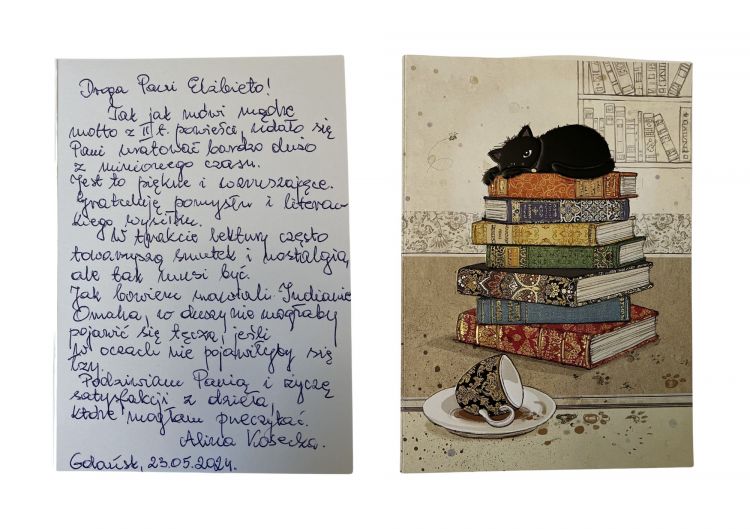 Droga Pani Elżbieto!
Tak jak mówi mądre
motto z II t. powieści, udało się
Pani uratować bardzo dużo
z minionego czasu.
Jest to piękne i wzruszające.
Gratuluję pomysłu i literac-
kiego wysiłku.
W trakcie lektury często
towarzyszą smutek i nostalgia,
ale tak musi być.
Jak bowiem mawiali Indianie
Omaha, w duszy nie mogłaby
pojawić się tęcza, jeśli
w oczach nie pojawiłyby się
łzy.
Podziwiam Panią i życzę
satysfakcji z dzieła,
które mogłam przeczytać.
Alina
Gdańsk, 23.05.2024.